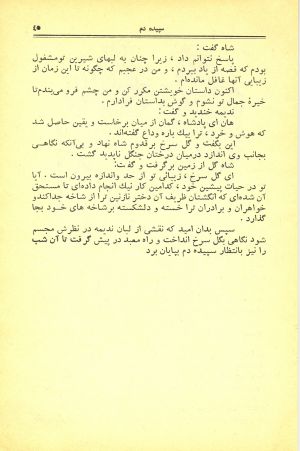 سپیده دم
۴۵
شاه گفت :
پاسخ نتوانم داد ، زیرا چنان به لبهای شیرین تومشغول
بودم که قصه از یاد ببردم ، و من در عجبم که چگونه تا این زمان از
زیبایی آنها غافل مانده‌ام .
اکنون داستان خویشتن مکرر کن و من چشم فرو می‌بندم‌تا
خیرهٔ جمال تو نشوم و گوش بداستان فرادارم .
ندیمه خندید و گفت :
هان ای پادشاه ، گمان از میان برخاست و یقین حاصل شد
که هوش و خرد ، ترا بیك باره وداع گفته‌اند .
این بگفت و گل سرخ برقدوم شاه نهاد و بی‌آنکه نگاهی
بجانب وی اندازد درمیان درختان جنگل ناپدید گشت .
شاه گل از زمین برگرفت و گفت:
ای گل سرخ ، زیبائی تو از حد واندازه بیرون است . آیا
تو در حیات پیشین خود ، کدامین کار نیك انجام داده‌ای تا مستحق
آن شده‌ای که انگشتان ظریف آن دختر نازنین ترا از شاخه جداکندو
خواهران و برادران ترا خسته و دلشکسته برشاخه های خود بجا
گذارد .
سپس بدان امید که نقشی از لبان ندیمه در نظرش مجسم
شود نگاهی بگل سرخ انداخت و راه معبد در پیش گرفت تا آن شب
را نیز بانتظار سپیده دم بپایان برد